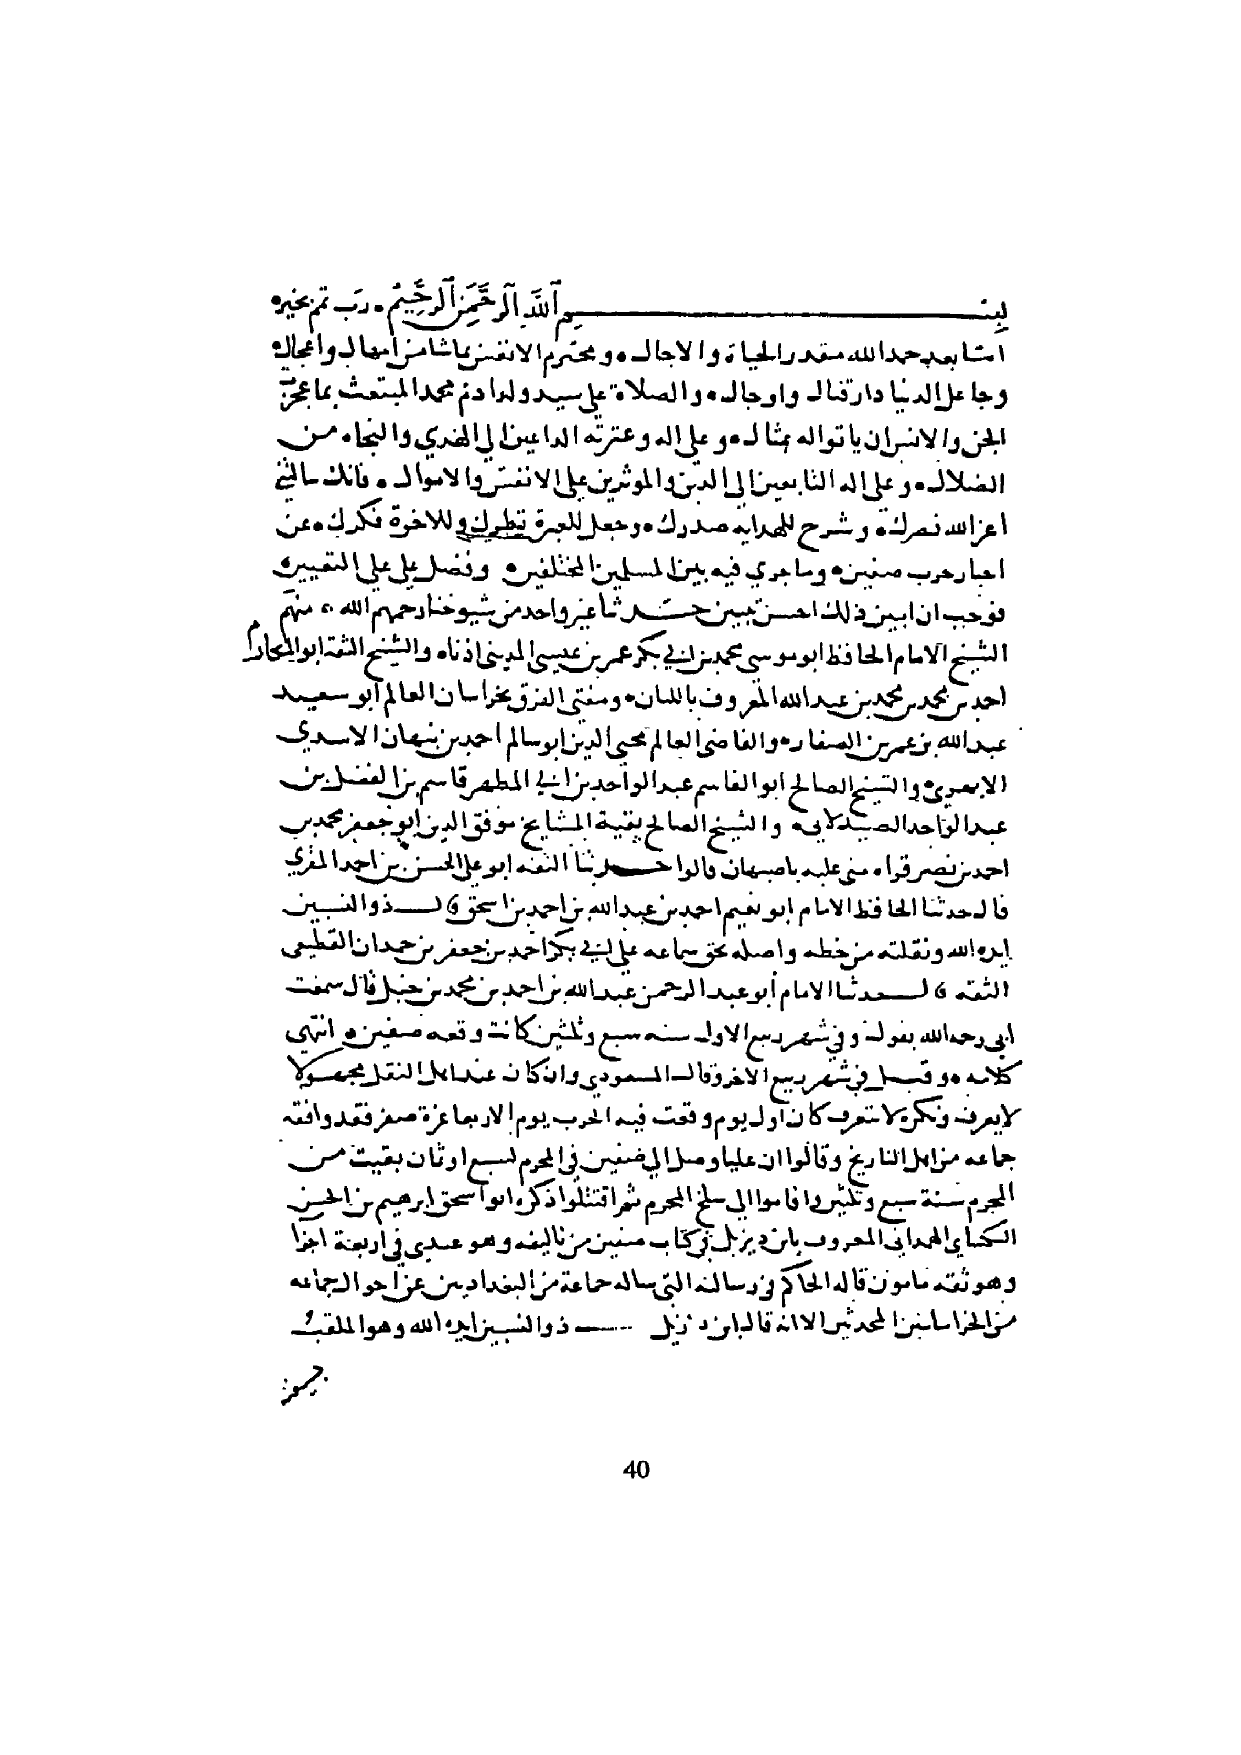 بسم الله الرحمن الرحيم • رب تمم بخيره
اما بعد حمد الله مقدر الحياة والاجال • ومخترم الانفس بما شا من امهال واعجال •
وجاعل الدنيا دار قتال واوجال • والصلاة على سيد ولد ادم محمد المبتعث بما عجز
الجن والانس ان ياتوا له بمثال • وعلى اله وعترته الداعين الى الهدي والنجاه من
الضلال • وعلى اله التابعين الى الدين والموثرين على الانفس والاموال • فانك سالتني
اعز الله نصرك • وشرح للهداية صدرك • وجعل للعبرة نظرك وللاخرة فكرك • عن
اخبار حرب صفين • وما جري فيه بين المسلمين المختلفين وفضل علي على التعيين
فوجب ان ابين ذلك احسن تبيين حدثنا غير واحد من شيوخنا رحمهم الله منهم
الشيخ الامام الحافظ ابو موسى محمد بن ابي بكر عمر بن عيسى المديني اذناه والشيخ الثقة ابو المكارم
احمد بن محمد بن محمد بن عبد الله المعروف باللبان • ومفتى الفرق بخراسان العالم ابو سعيد
عبد الله بن عمر بن الصفار • والقاضى العالم محيى الدين ابو سالم احمد بن بنهان الاسدي
والشيخ الصالح ابو القاسم عبد الواحد بن ابي المطهر قاسم بن الفضل بن
عبد الواحد الصيدلاني • والشيخ الصالح بقية المشايخ موفق الدين ابو جعفر محمد بن
احمد بن نصر قراه منى عليه باصبهان قالوا حدثنا الثقه ابو على الحسن بن احمد المقري
قال حدثنا الحافظ الامام ابو نعيم احمد بن عبد الله بن احمد بن اسحق قال ذو النسبين
ايده الله ونقلته من خطه واصله بحق سماعه على ابي بكر احمد بن جعفر بن حمدان القطيعى
الثقه قال حدثنا الامام أبو عبد الرحمن عبد الله بن احمد بن محمد بن حنبل قال سمعت
ابى رحمه الله يقول وفي شهر ربيع الاول سنه سبع وثلثين كانت وقعه صفين • انتهى
كلامه • وقيل في شهر ربيع الاخر وقال المسعودي وان كان عند اهل النقل مجهولا
لا يعرف ونكرة لا تتعرف كان اول يوم وقعت فيه الحرب يوم الاربعا غرة صفر فقد وافقه
جماعه من اهل التاريخ وقالوا ان عليا وصل الى صفين في المحرم لسبع او ثمان بقيت من
المحرم سنة سبع وثلثين واقاموا الى سلخ المحرم ثم اقتتلوا ذكره ابو اسحق ابرهيم بن الحسن
الكسائي الهمدانى المعروف بابن ديزيل في كتاب صفين من تاليفه وهو عندي في اربعة اجزا
وهو ثقه مامون قاله الحاكم في رسالته التى ساله جماعة من البغداديين عن احوال جماعه
من الخراسانيين المحدثين الا انه قال ابن ديزيل ذو النسبين ايده الله وهو الملقب
40